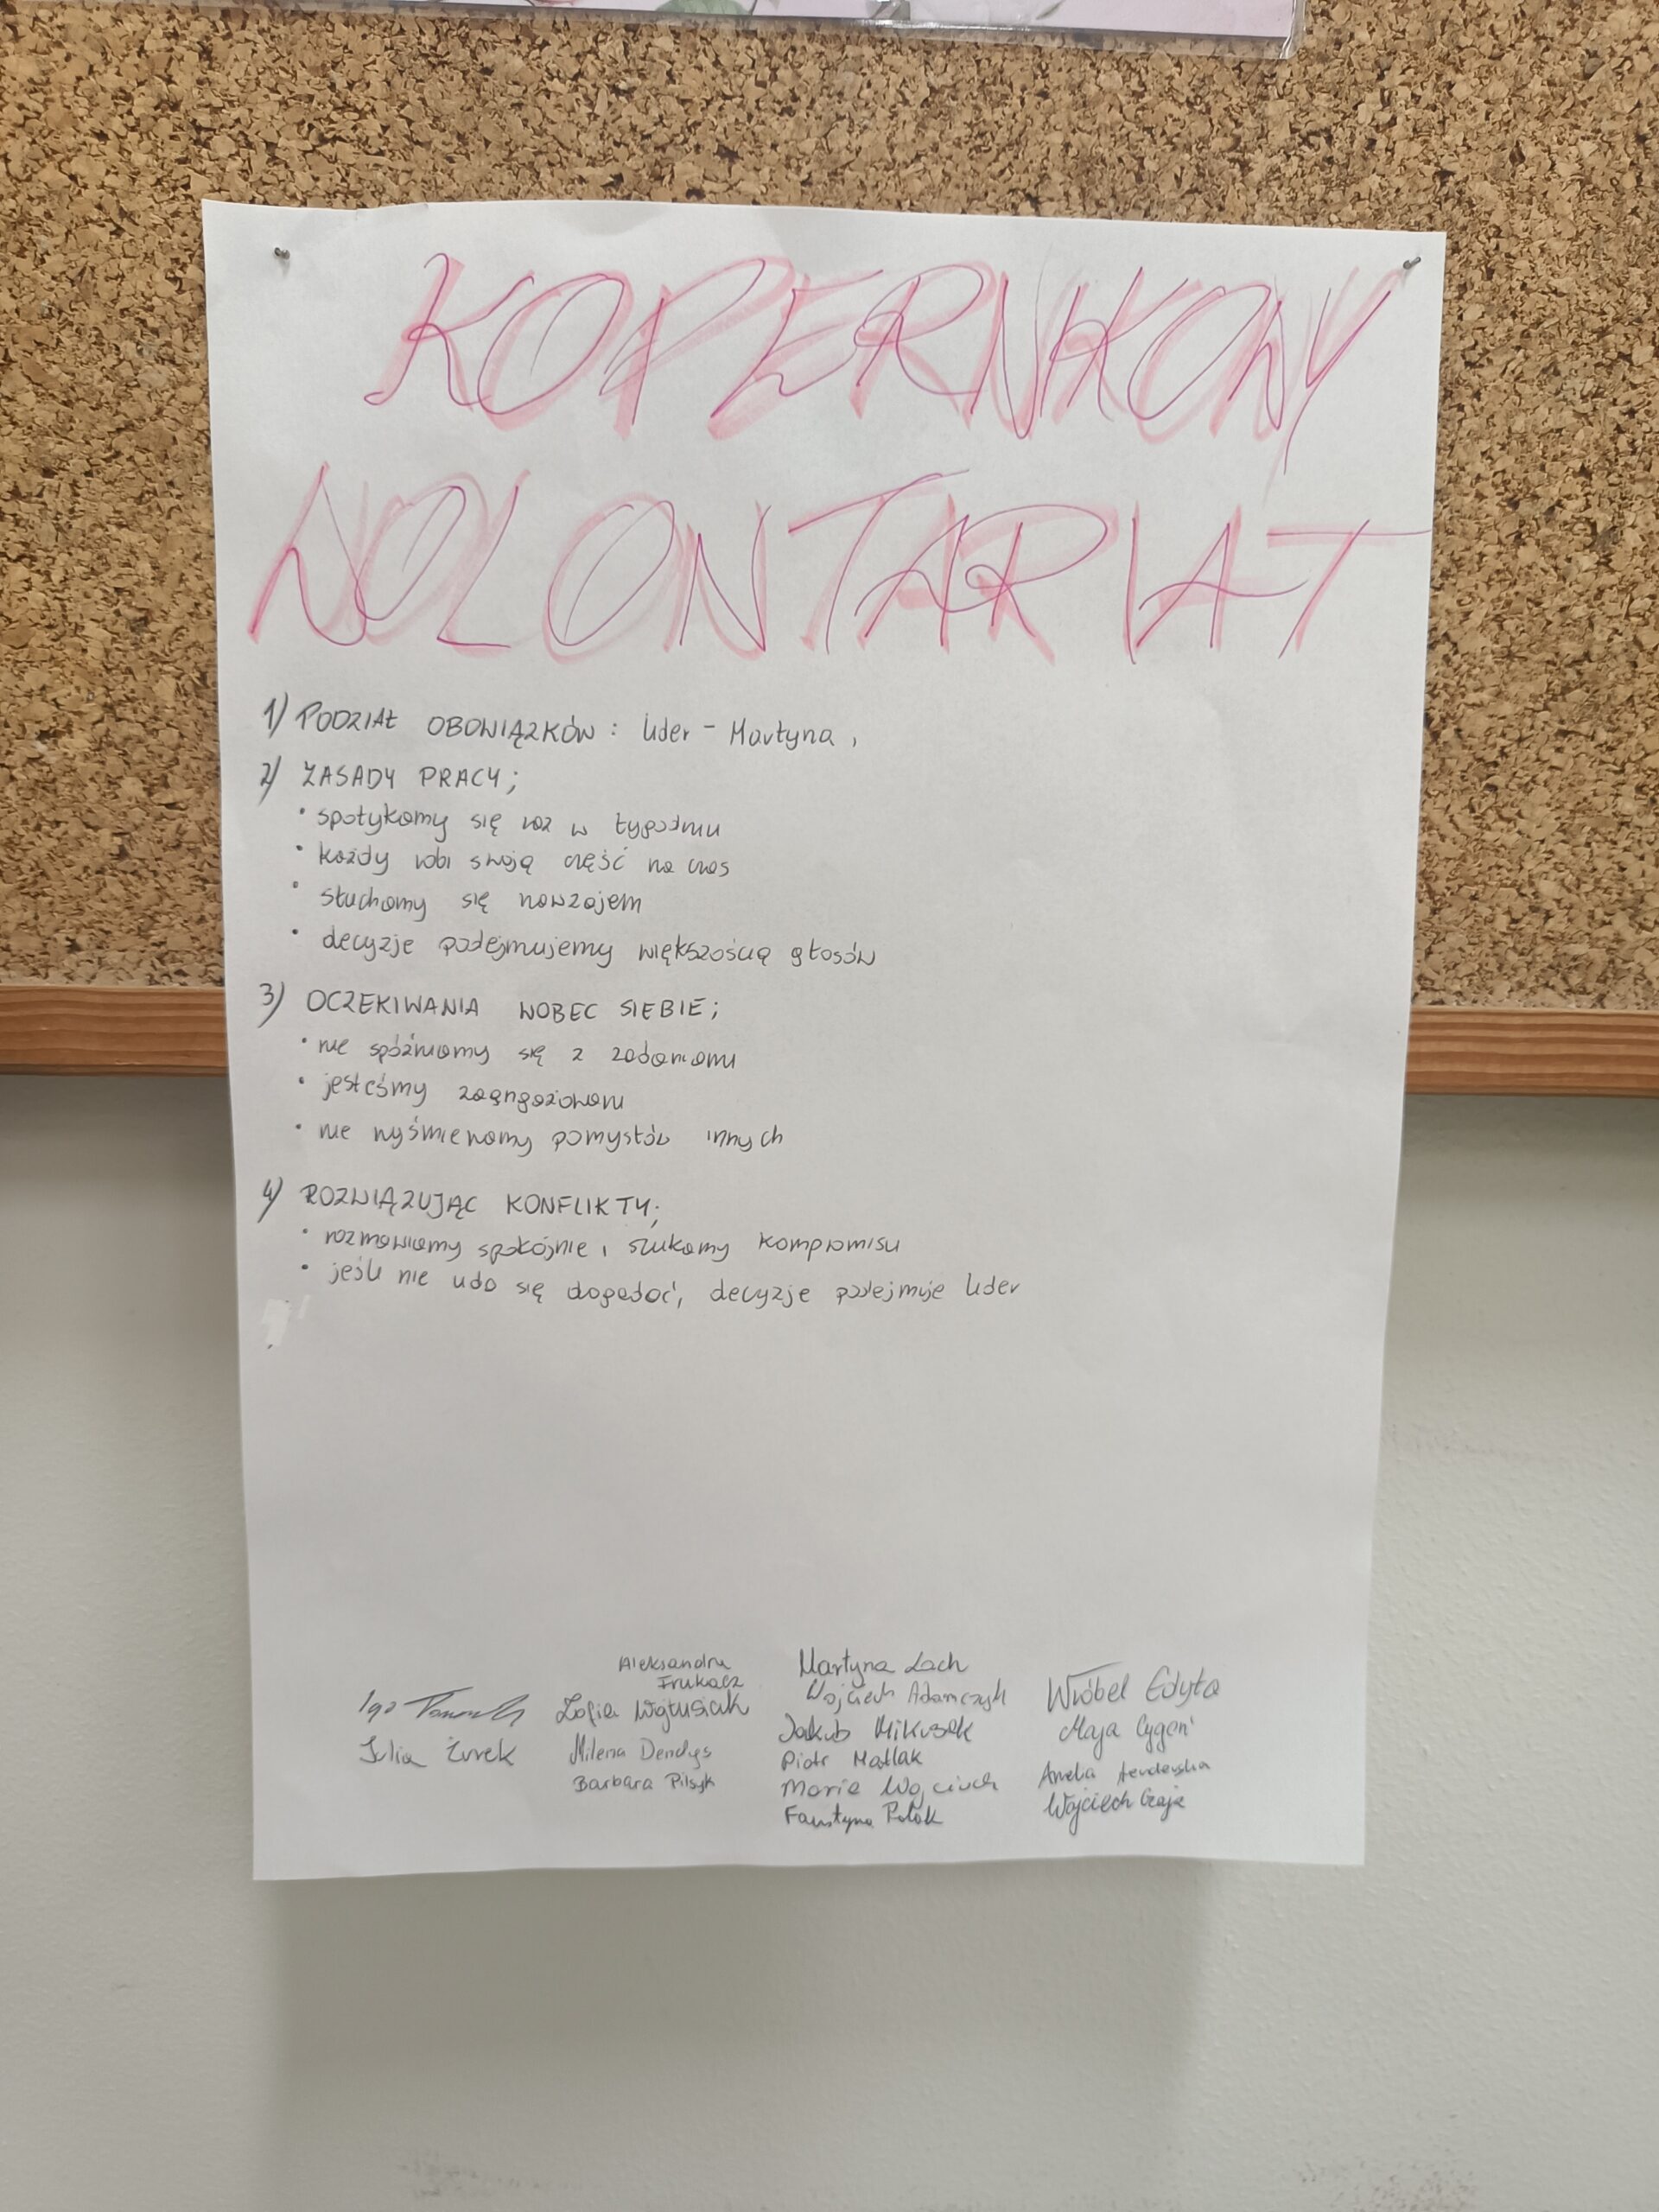 KOPERNIKOWY
WOLONTARIAT
1) PODZIAŁ OBOWIĄZKÓW: lider - Martyna,
2) ZASADY PRACY;
• spotykamy się raz w tygodniu
• każdy robi swoją część na czas
• słuchamy się nawzajem
• decyzje podejmujemy większością głosów
3) OCZEKIWANIA WOBEC SIEBIE;
• nie spóźniamy się z zadaniami
• jesteśmy zaangażowani
• nie wyśmiewamy pomysłów innych
4) ROZWIĄZUJĄC KONFLIKTY;
• rozmawiamy spokojnie i szukamy kompromisu
• jeśli nie uda się dogadać, decyzje podejmuje lider
Iga
Julia Żurek
Aleksandra
Frukacz
Zofia Wojtusiak
Milena Dendys
Barbara Pilsyk
Martyna Lach
Wojciech Adamczyk
Jakub Mikusek
Piotr Matlak
Maria Wojciuch
Faustyna Polak
Wróbel Edyta
Maja Cygoń
Amelia
Wojciech Czaja